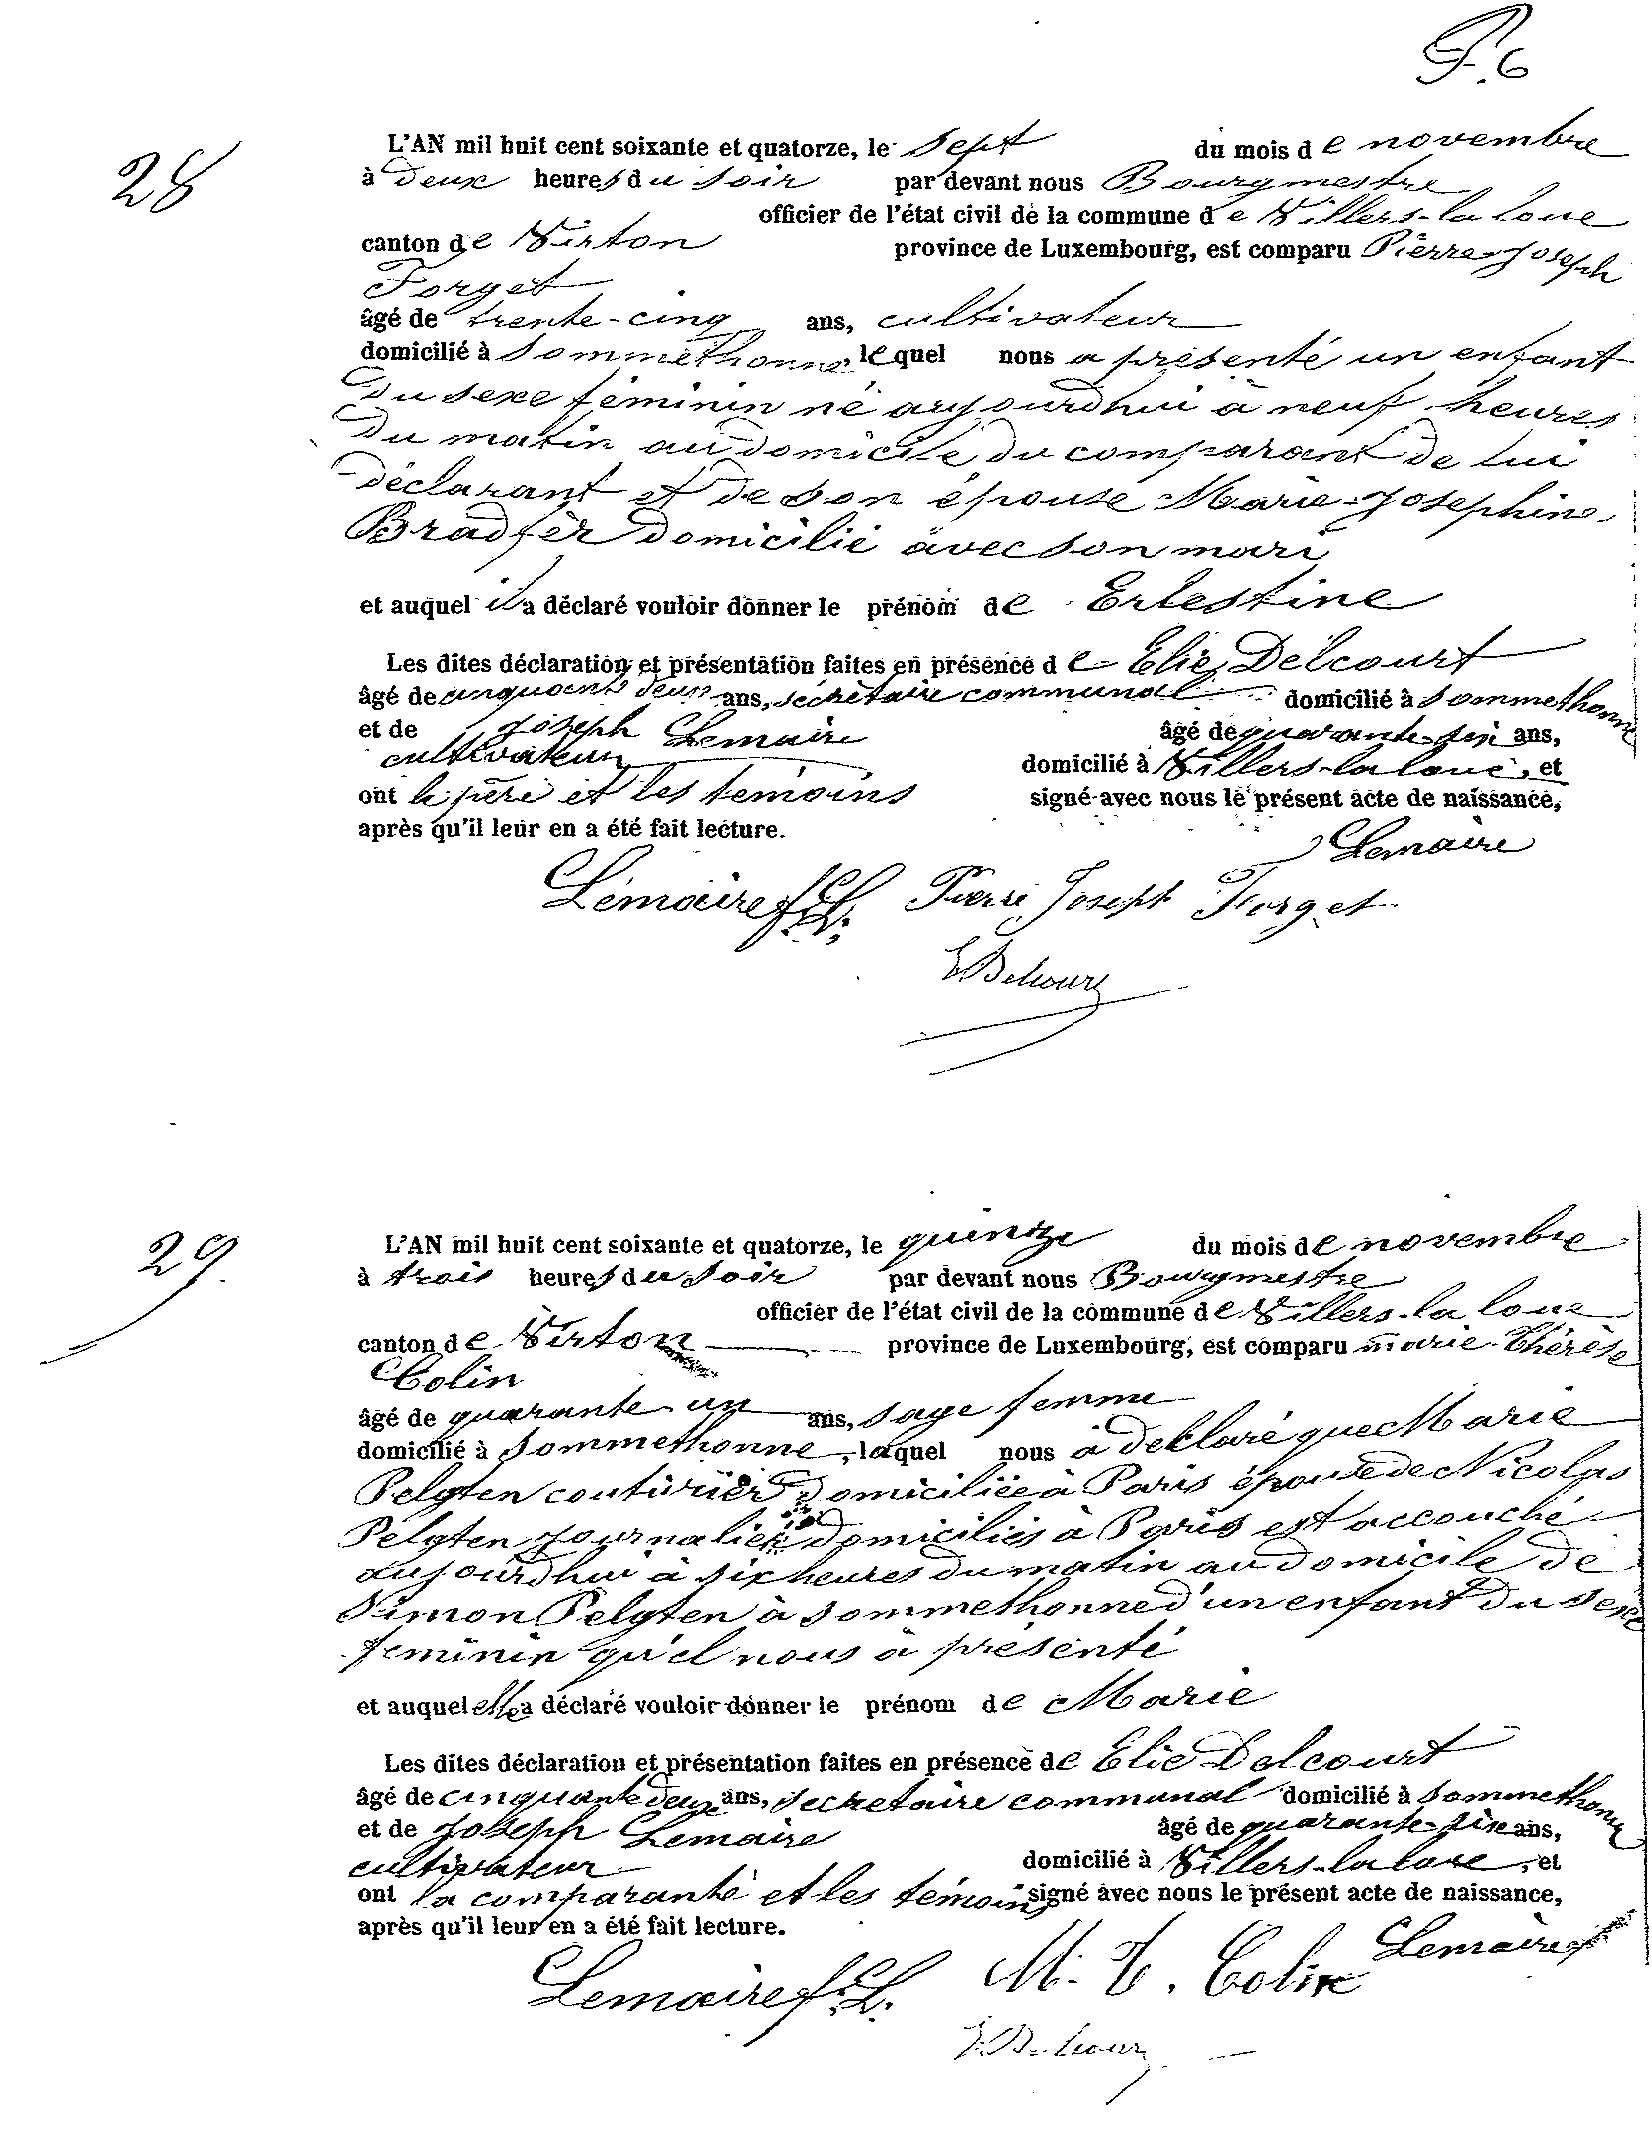 F. 6
28
L'AN mil huit cent soixante et quatorze, le sept du mois de novembre
à deux heures du soir par devant nous Bourgmestre
officier de l'état civil de la commune de Villers-la-loue
canton de Virton province de Luxembourg, est comparu Pierre Joseph
Forget
âgé de trente-cinq ans, cultivateur
domicilié à Sommethonne, lequel nous a présenté un enfant
du sexe féminin né aujourdhui à neuf heures
du matin au domicile du comparant de lui
déclarant et de son épouse Marie-Josephine
Bradfer domicilié avec son mari
et auquel il a déclaré vouloir donner le prénom de Erlestine
Les dites déclaration et présentation faites en présence de Elie Delcourt
âgé de cinquante deux ans, secrétaire communal domicilié à Sommethonne
et de Joseph Lemaire âgé de quarante-six ans,
cultivateur domicilié à Villers-la-loue, et
ont le père et les témoins signé avec nous le présent acte de naissance,
après qu'il leur en a été fait lecture.
Lemaire
Lemaire f. L. Pierre Joseph Forget
E Delcourt
29
L'AN mil huit cent soixante et quatorze, le quinze du mois de novembre
à trois heures du soir par devant nous Bourgmestre
officier de l'état civil de la commune de Villers-la loue
canton de Virton province de Luxembourg, est comparu marie-Thérèse
Colin
âgé de quarante-un ans, sage femme
domicilié à Sommethonne, laquel nous à déclaré que Marie
Pelgten couturièr domiciliée à Paris épouse de Nicolas
Pelgten Journalier domiciliés à Paris est accouché
aujourdhui à six heures du matin au domicile de
Simon Pelgten à Sommethonne d'un enfant du sexe
feminin qu'el nous à présenté
et auquel elle a déclaré vouloir donner le prénom de Marie
Les dites déclaration et présentation faites en présence de Elie Delcourt
âgé de cinquante deux ans, secretaire communal domicilié à Sommethonne
et de Joseph Lemaire âgé de quarante-six ans,
cultivateur domicilié à Villers-la loue, et
ont la comparante et les témoins signé avec nous le présent acte de naissance,
après qu'il leur en a été fait lecture.
Lemaire f. L. M. T. Colin Lemaire
E Delcourt